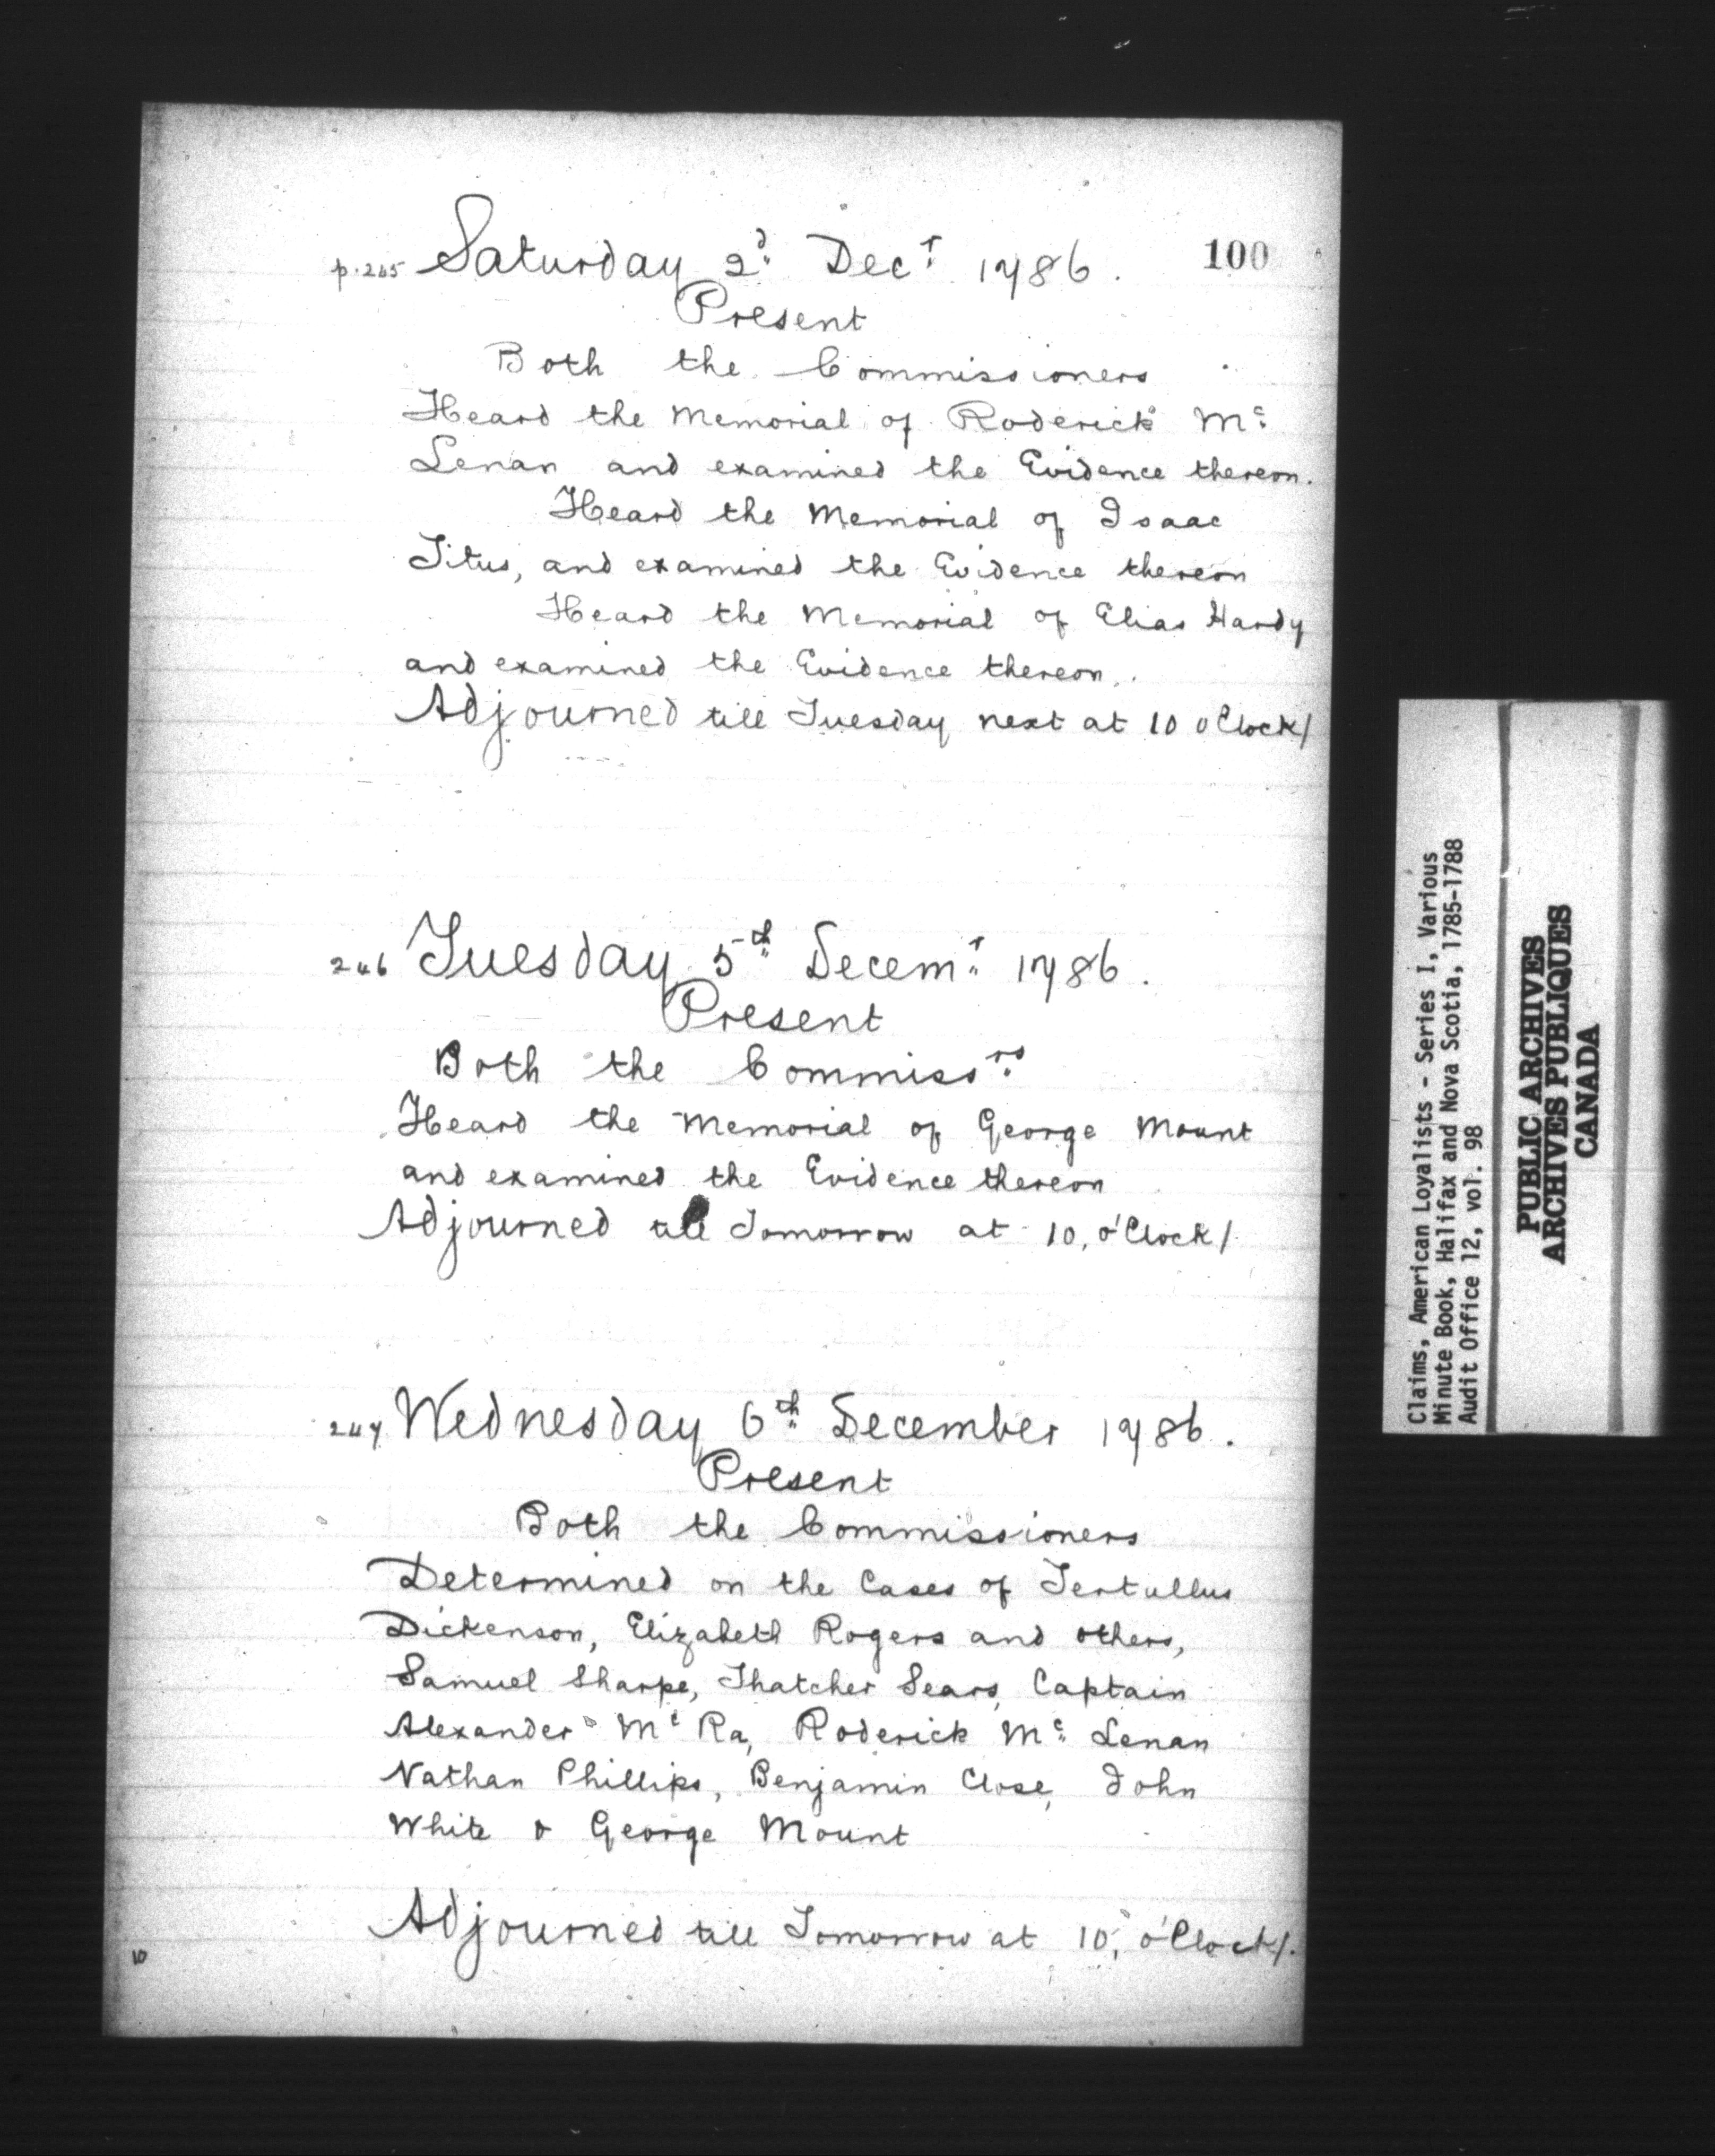 100
p. 245 Saturday 2d Decr 1786.
Present
Both the Commissioners
Heard the Memorial of Roderick Mc
Lenan and examined the Evidence thereon.
Heard the Memorial of Isaac
Titus, and examined the Evidence thereon
Heard the Memorial of Elias Hardy
and examined the Evidence thereon.
Adjourned till Tuesday next at 10 o Clock/
246 Tuesday 5th Decemr 1786.
Present
Both the Commissrs
Heard the Memorial of George Mount
and examined the Evidence thereon
Adjourned till Tomorrow at 10, o'Clock/
247 Wednesday 6th December 1786.
Present
Both the Commissioners
Determined on the Cases of Tertullus
Dickenson, Elizabeth Rogers and others,
Samuel Sharpe, Thatcher Sears, Captain
Alexander Mc Ra, Roderick Mc Lenan
Nathan Phillips, Benjamin Close, John
White & George Mount
Adjourned till Tomorrow at 10, o'Clock/.
10
Claims, American Loyalists - Series I, Various
Minute Book, Halifax and Nova Scotia, 1785-1788
Audit Office 12, vol. 98
PUBLIC ARCHIVES
ARCHIVES PUBLIQUES
CANADA